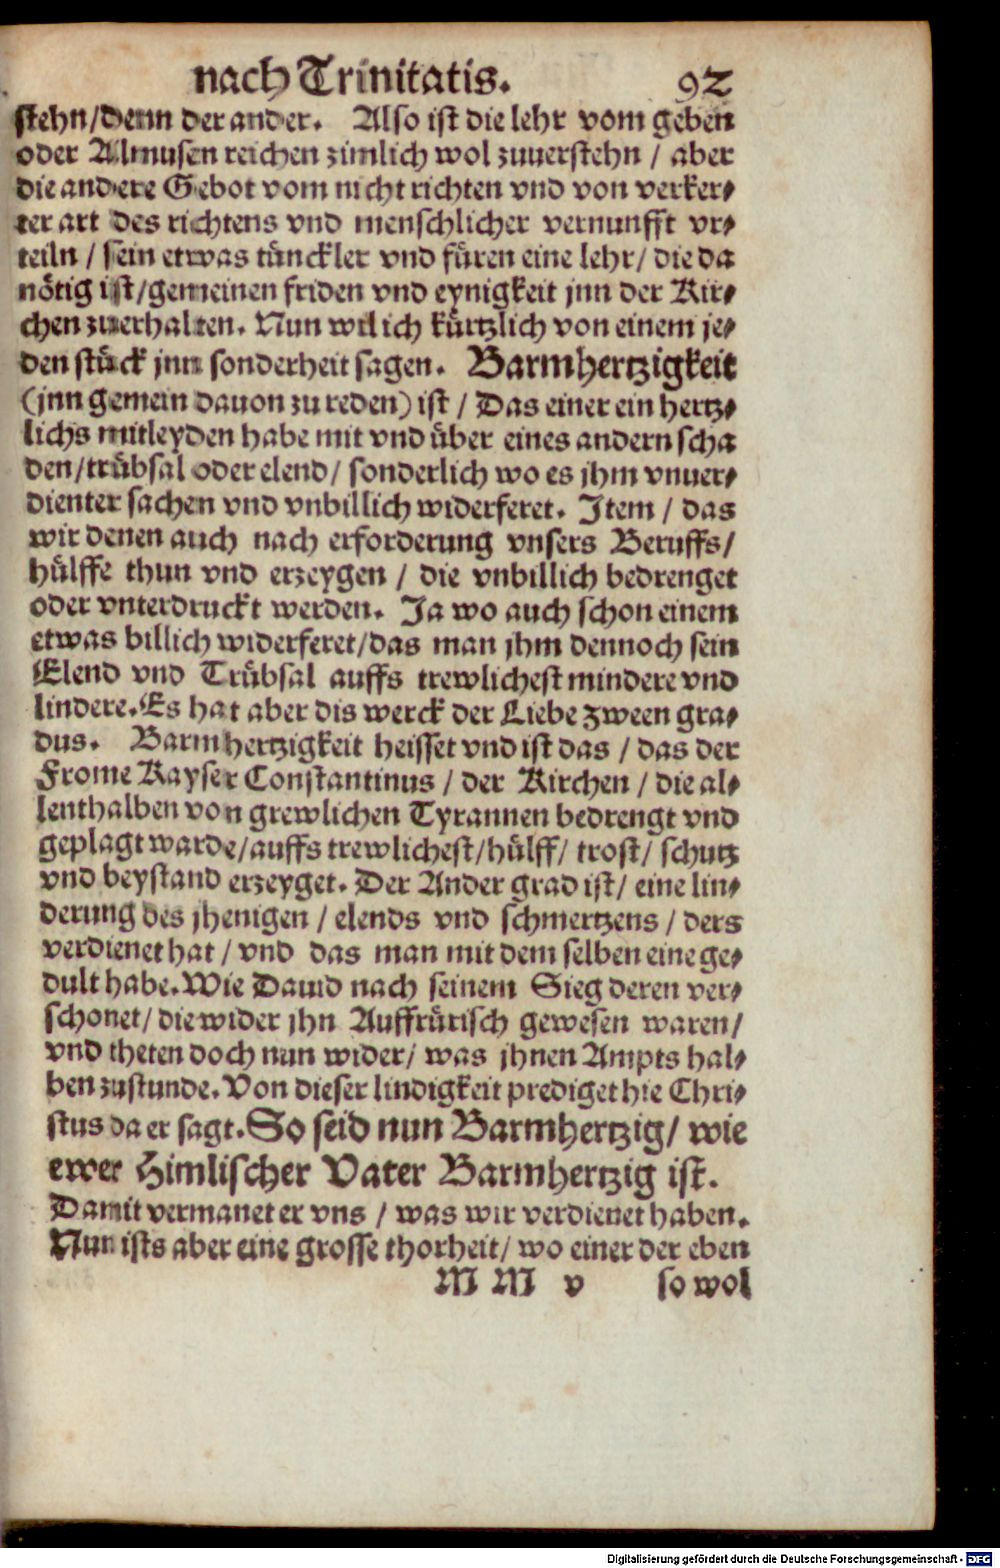 nach Trinitatis. 92
stehn/denn der ander. Also ist die lehr vom geben
oder Almusen reichen zimlich wol zuuerstehn / aber
die andere Gebot vom nicht richten vnd von verker⸗
ter art des richtens vnd menschlicher vernunfft vr⸗
teiln / sein etwas tünckler vnd füren eine lehr/ die da
nötig ist/gemeinen friden vnd eynigkeit jnn der Kir⸗
chen zuerhalten. Nun wil ich kürtzlich von einem je⸗
den stück jnn sonderheit sagen. Barmhertzigkeit
(jnn gemein dauon zu reden) ist / Das einer ein hertz⸗
lichs mitleyden habe mit vnd über eines andern scha
den/trübsal oder elend/ sonderlich wo es jhm vnuer⸗
dienter sachen vnd vnbillich widerferet. Item / das
wir denen auch nach erforderung vnsers Beruffs/
hülffe thun vnd erzeygen / die vnbillich bedrenget
oder vnterdruckt werden. Ja wo auch schon einem
etwas billich widerferet/das man jhm dennoch sein
Elend vnd Trübsal auffs trewlichest mindere vnd
lindere. Es hat aber dis werck der Liebe zween gra⸗
dus. Barmhertzigkeit heisset vnd ist das / das der
Frome Kayser Constantinus / der Kirchen / die al⸗
lenthalben von grewlichen Tyrannen bedrengt vnd
geplagt warde/auffs trewlichest/hülff/ trost/ schutz
vnd beystand erzeyget. Der Ander grad ist/ eine lin⸗
derung des jhenigen / elends vnd schmertzens / ders
verdienet hat / vnd das man mit dem selben eine ge⸗
dult habe. Wie Dauid nach seinem Sieg deren ver⸗
schonet/ die wider jhn Auffrürisch gewesen waren/
vnd theten doch nun wider/ was jhnen Ampts hal⸗
ben zustunde. Von dieser lindigkeit prediget hie Chri⸗
stus da er sagt. So seid nun Barmhertzig/ wie
ewer Himlischer Vater Barmhertzig ist.
Damit vermanet er vns / was wir verdienet haben.
Nun ists aber eine grosse thorheit/ wo einer der eben
M M v so wol
Digitalisierung gefördert durch die Deutsche Forschungsgemeinschaft - DFG